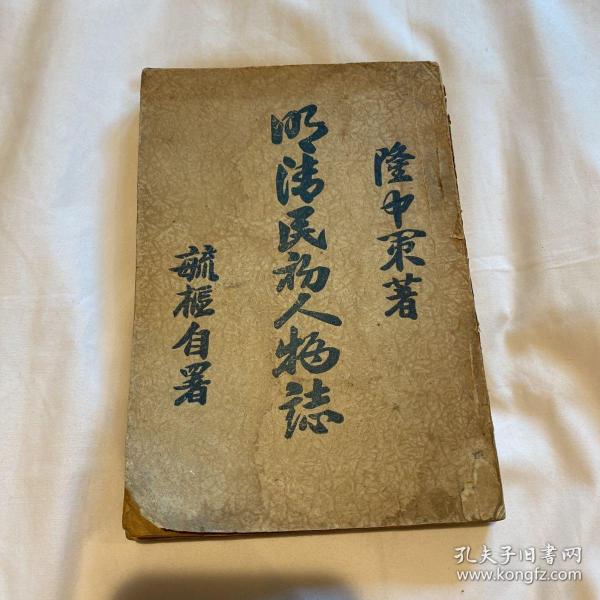 隆中策著
明清民初人物誌
毓樞自署
孔夫子旧書网
www.kongfz.com